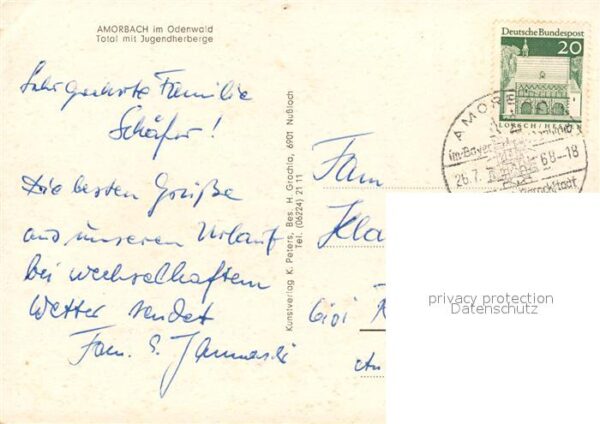 AMORBACH im Odenwald
Total mit Jugendherberge
Sehr geehrte Familie
Schäfer!
Die besten Grüße
aus unserem Urlaub
bei wechselhaftem
Wetter sendet
Fam.
Kunstverlag K. Peters, Bes. H. Grachla, 6901 Nußloch
Tel. (06224) 21 11
Deutsche Bundespost
20
LORSCH / HESSEN
AMOR
im Bayer
26.7. 68-18
Barockstadt
Fam
Kla
6101
privacy protection
Datenschutz